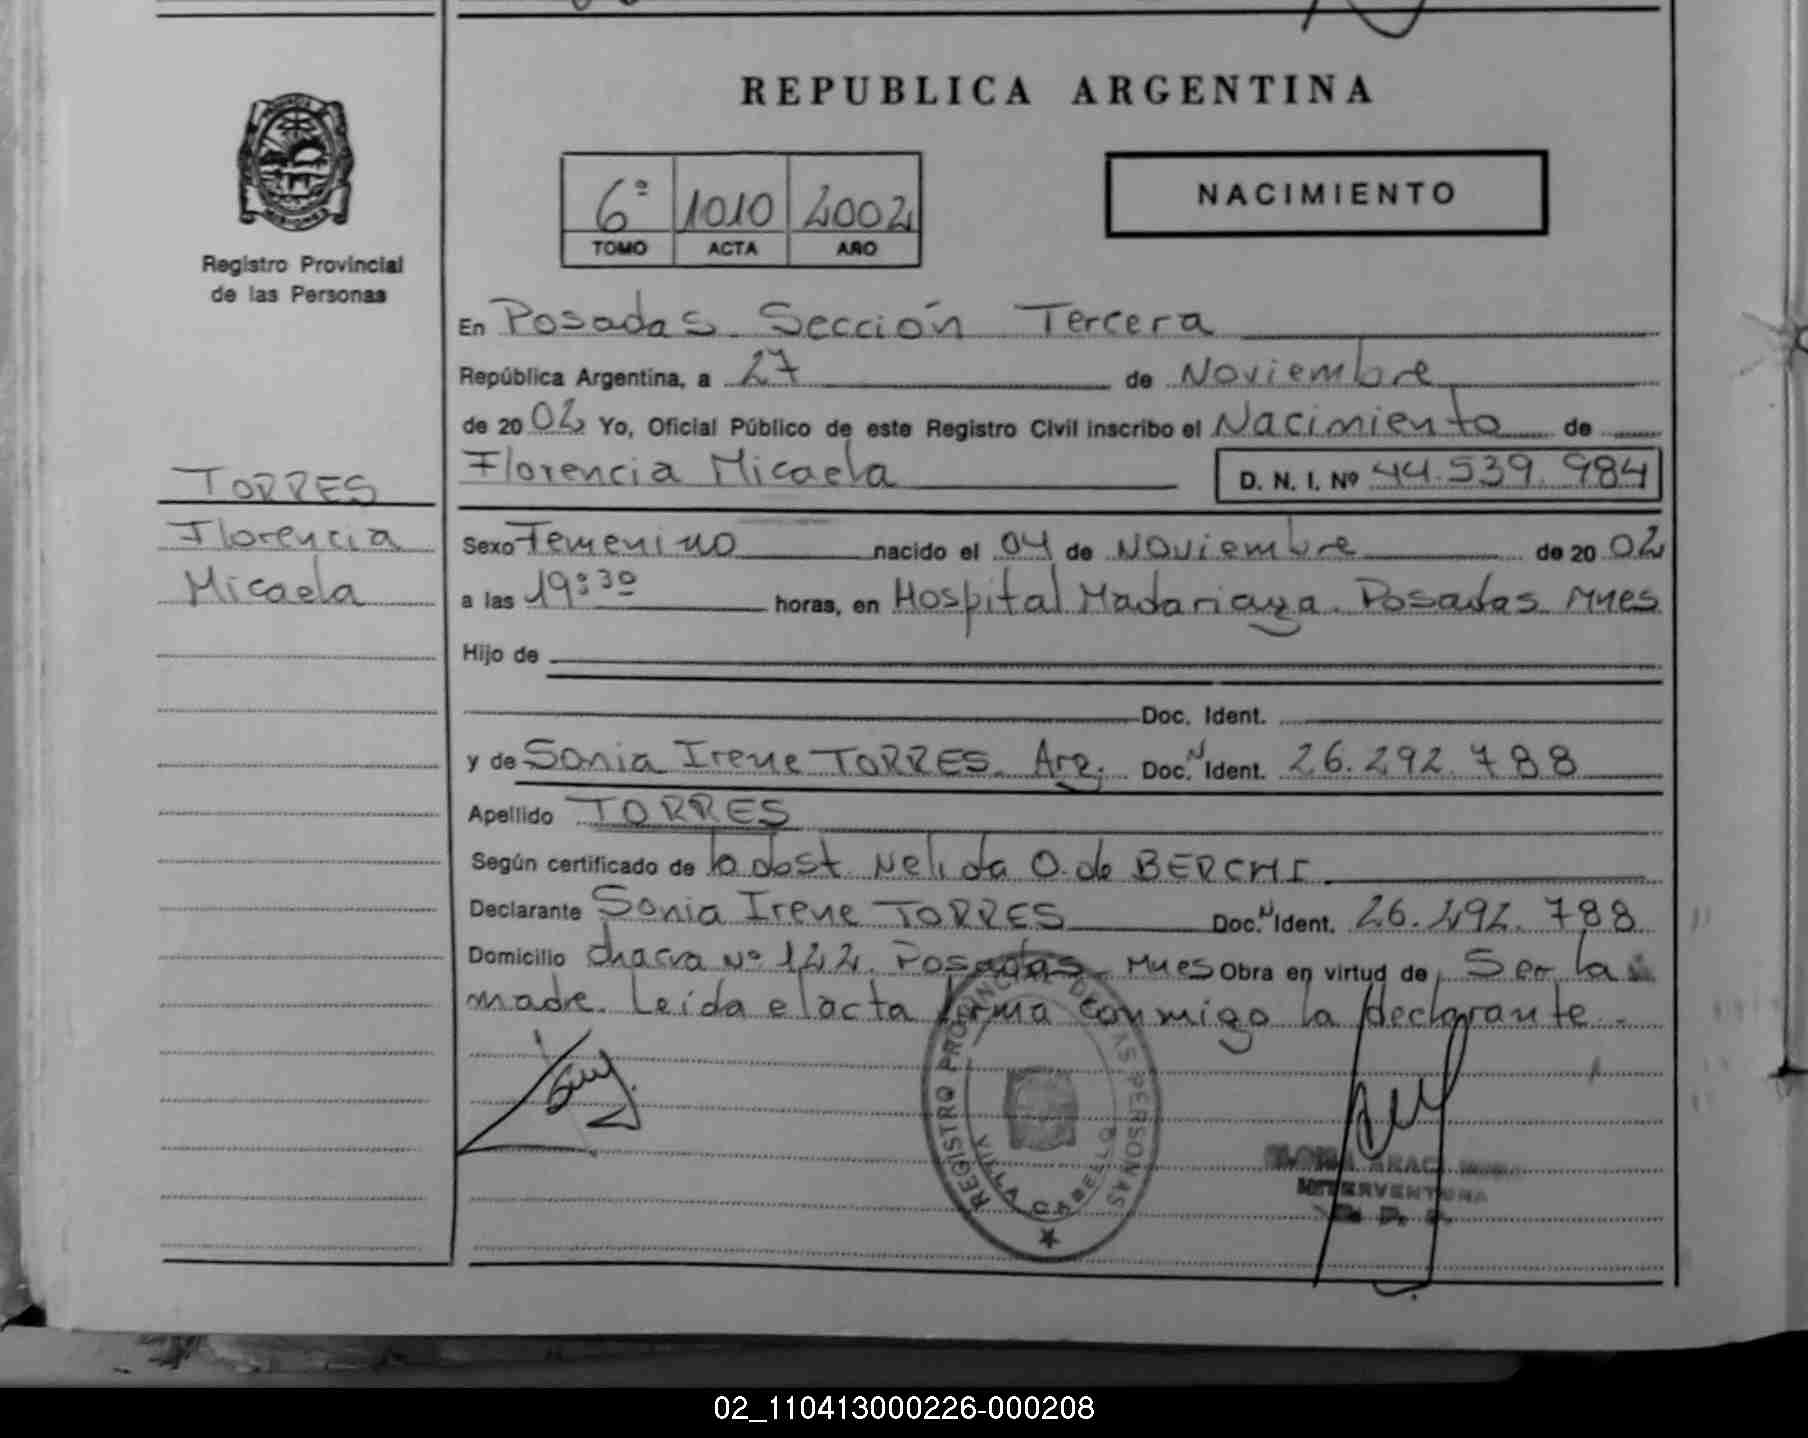 REPUBLICA ARGENTINA
6º 1010 2002
TOMO ACTA AÑO
NACIMIENTO
Registro Provincial
de las Personas
TORRES
Florencia
Micaela
En Posadas. Sección Tercera
República Argentina, a 27 de Noviembre
de 2002 Yo, Oficial Público de este Registro Civil inscribo el Nacimiento de
Florencia Micaela D. N. I. Nº 44.539.984
Sexo Femenino nacido el 04 de Noviembre de 2002
a las 19:30 horas, en Hospital Madariaga. Posadas Mnes
Hijo de
Doc. Ident.
y de Sonia Irene TORRES. Arg. Doc. N Ident. 26.292.788
Apellido TORRES
Según certificado de la obst. Nelida O. de
Declarante Sonia Irene TORRES Doc. N Ident. 26.292.788
Domicilio chacra Nº 122. Posadas. Mnes Obra en virtud de Ser la
madre. Leída el acta firma conmigo la declarante.
REGISTRO PROVINCIAL DE LAS PERSONAS
VILLA CABELLO
INTERVENTORA
02_110413000226-000208